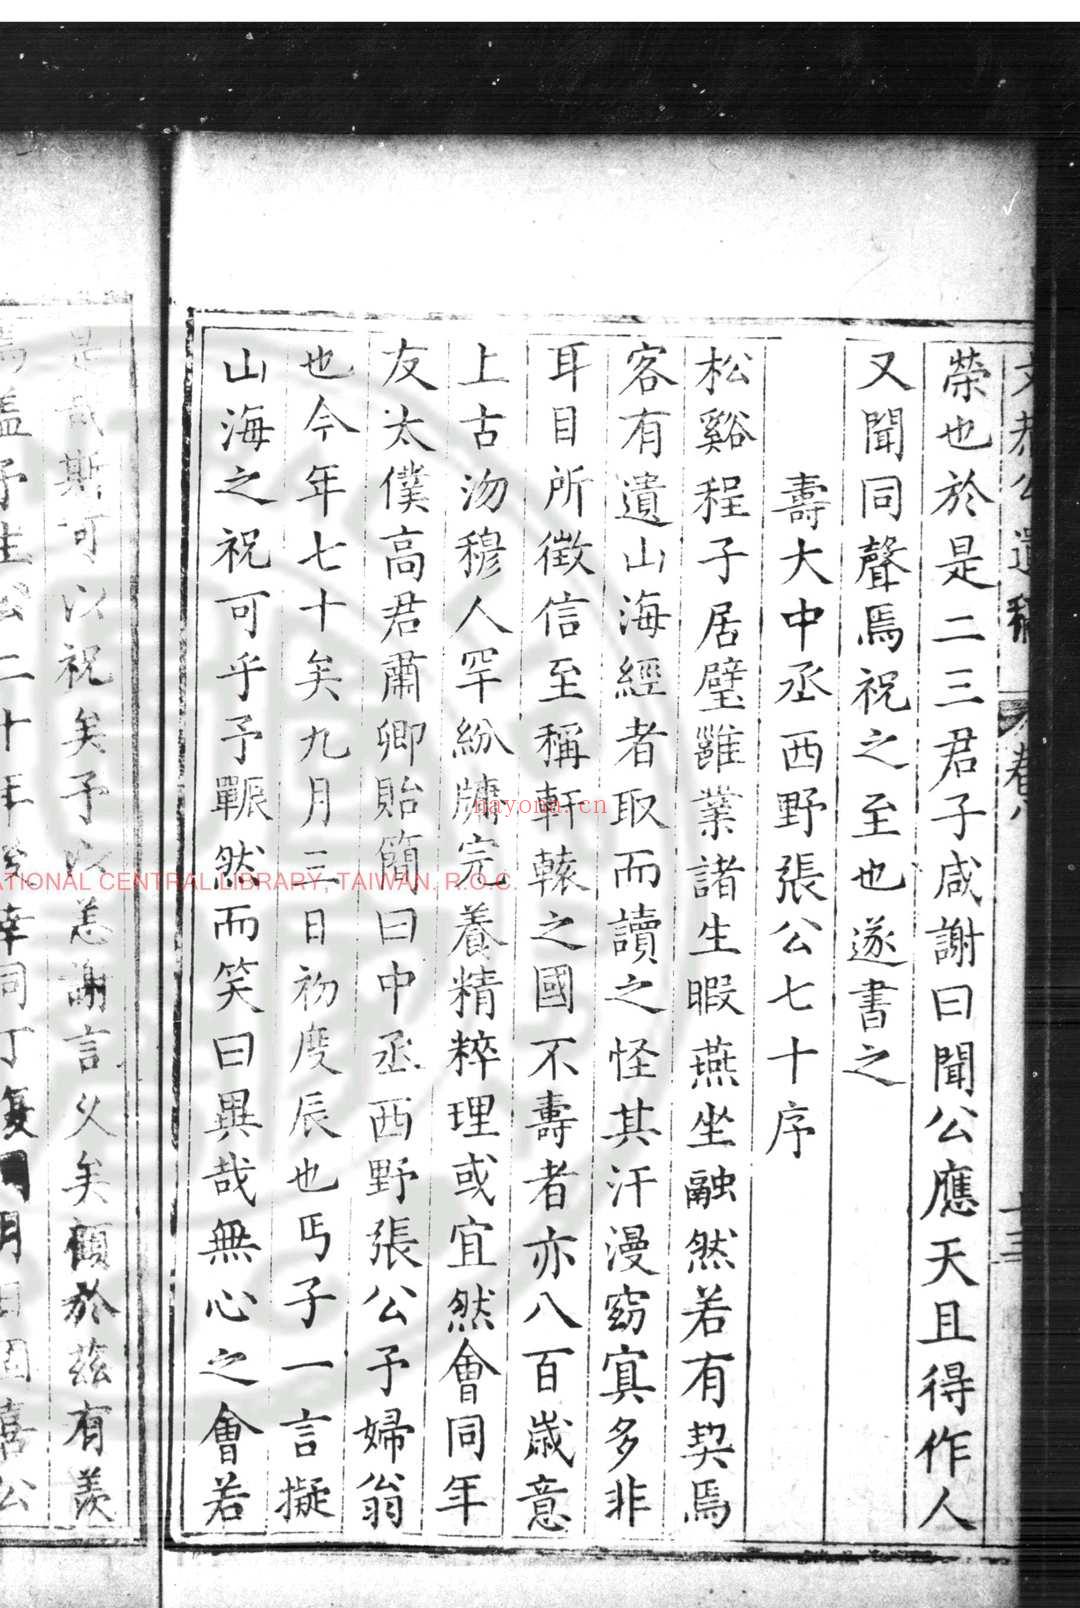 文恭公遺稿 卷八 十三
榮也於是二三君子咸謝曰聞公應天且得作人
又聞同聲焉祝之至也遂書之
壽大中丞西野張公七十序
松谿程子居璧雝業諸生暇燕坐融然若有契焉
客有遺山海經者取而讀之怪其汗漫窈寘多非
耳目所徵信至稱軒轅之國不壽者亦八百歲意
上古沕穆人罕紛牗完養精粹理或宜然會同年
友太僕高君肅卿貽簡曰中丞西野張公予婦翁
也今年七十矣九月三日初度辰也丐子一言擬
山海之祝可乎予囅然而笑曰異哉無心之會若
是哉斯可以祝矣予以恙謝言久矣顧於茲有羨
焉蓋予生公二十年
NATIONAL CENTRAL LIBRARY, TAIWAN, R.O.C.
nayona.cn